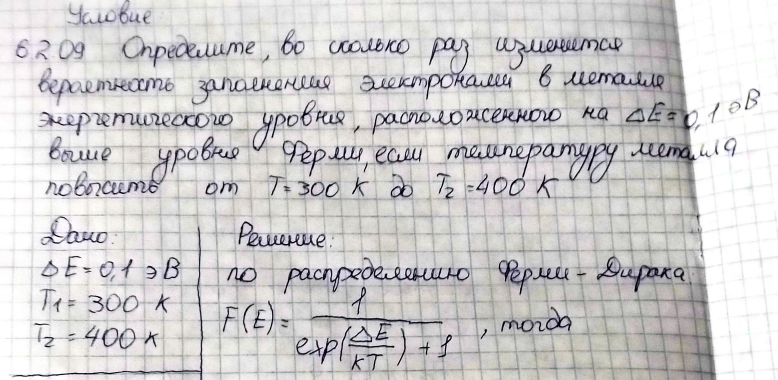 Условие
6209 Определите, во сколько раз изменится
вероятность заполнения электронами в металле
энергетического уровня, расположенного на ΔE=0,1 эВ
выше уровня Ферми, если температуру металла
повысить от T=300 К до T₂=400 К
Дано:
ΔE=0,1 эВ
T₁=300 К
T₂=400 К
Решение:
по распределению Ферми-Дирака:
F(E)= 1/(exp(ΔE/кT)+1), тогда